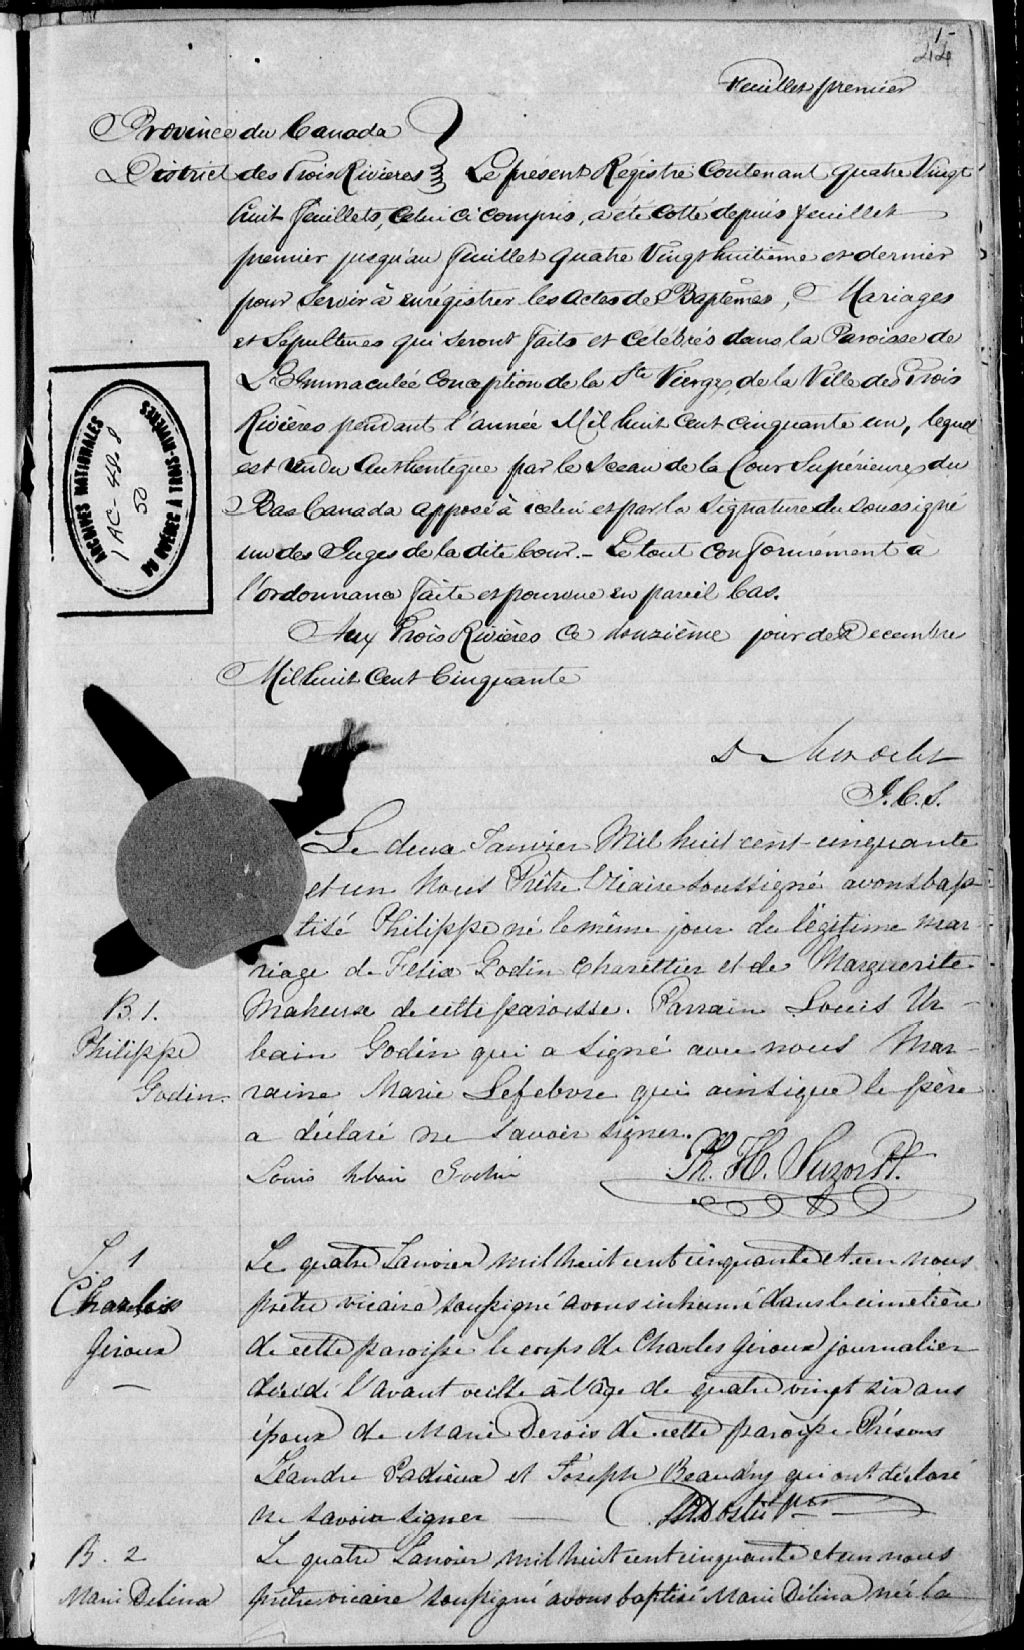 1
22
Feuillet premier
Province du Canada
District des Trois Rivières } Le présent Régistre Contenant quatre Vingt
huit feuillets, celui ci compris, a été Cotté depuis feuillet
premier jusqu'au feuillet quatre Vingt huitième et dernier
pour Servir à enrégistrer les actes de Baptêmes, Mariages
et Sépultures qui seront faits et célébrés dans la Paroisse de
L'Immaculée Conception de la Ste Vierge, de la Ville des Trois
Rivières pendant l'année Mil huit cent cinquante un, lequel
est rendu Authentique par le Sceau de la Cour Supérieure du
Bas Canada apposé à icelui et par la Signature du Soussigné
un des Juges de la dite Cour. - Le tout conformément à
l'ordonnance faite et pourvue en pareil Cas.
Aux Trois Rivières Ce douzième jour de Decembre
Mil huit Cent Cinquante
ARCHIVES NATIONALES
1 AC - 48.8
50
DU QUÉBEC À TROIS-RIVIÈRES
D Mondelet
J.C.S.
Le deux Janvier Mil huit cent cinquante
et un Nous Prêtre Vicaire soussigné avons bap
tisé Philippe né le même jour du légitime mar-
riage de Félix Godin Charettier et de Marguerite
B. 1. Maheux de cette paroisse. Parrain Louis Ur-
Philippe bain Godin qui a signé avec nous Mar-
Godin. raine Marie Lefebvre qui ainsi que le père
a déclaré ne savoir signer.
Louis Urbain Godin Ph. H. Suzor Pt.
S. 1 Le quatre Janvier mil huit cent cinquante et un nous
Charles prêtre vicaire soussigné avons inhumé dans le cimetière
Giroux de cette paroisse le corps de Charles Giroux journalier
décédé l'avant veille à l'âge de quatre vingt six ans
époux de Marie Derois de cette paroisse. Présens
Léandre Ladieux et Joseph Beaudry qui ont déclaré
ne savoir signer ptre
B. 2 Le quatre Janvier mil huit cent cinquante et un nous
Marie Delina prêtre vicaire soussigné avons baptisé Marie Délina née la